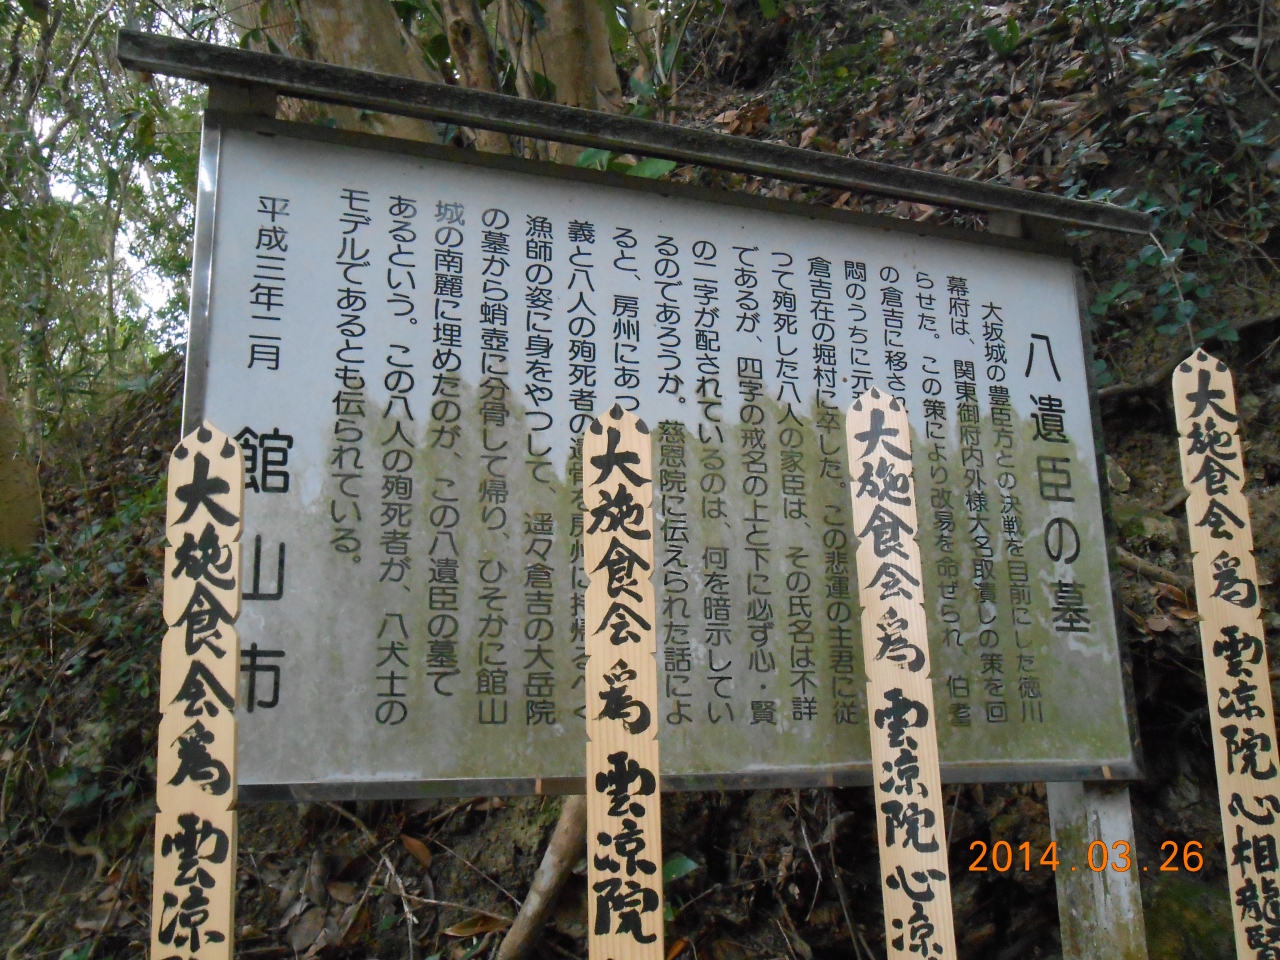 八遺臣の墓
大坂城の豊臣方との決戦を目前にした徳川
幕府は、関東御府内外様大名取潰しの策を回
らせた。この策により改易を命ぜられ、伯耆
の倉吉に移さ
悶のうちに元
倉吉在の堀村に卒した。この悲運の主君に従
って殉死した八人の家臣は、その氏名は不詳
であるが、四字の戒名の上と下に必ず心・賢
の二字が配されているのは、何を暗示してい
るのであろうか。慈恩院に伝えられた話によ
ると、房州にあっ
義と八人の殉死者の遺骨を房州に持帰るべく
漁師の姿に身をやつして、遥々倉吉の大岳院
の墓から蛸壺に分骨して帰り、ひそかに館山
城の南麗に埋めたのが、この八遺臣の墓て
あるという。この八人の殉死者が、八犬士の
モデルであるとも伝られている。
平成三年二月 館山市
大施食会為雲涼院心相龍賢
大施食会為雲涼院心涼
大施食会為雲涼院
大施食会為雲涼
2014.03.26